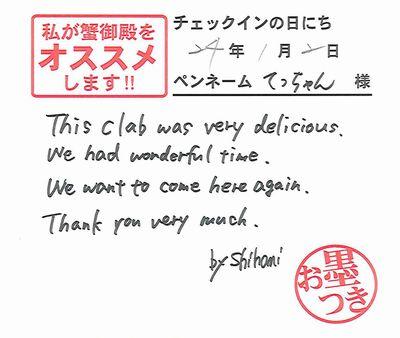 私が蟹御殿を
オススメ
します!!
チェックインの日にち
24年1月2日
ペンネーム てっちゃん 様
This clab was very delicious.
We had wonderful time.
We want to come here again.
Thank you very much.
by Shihomi
お墨つき